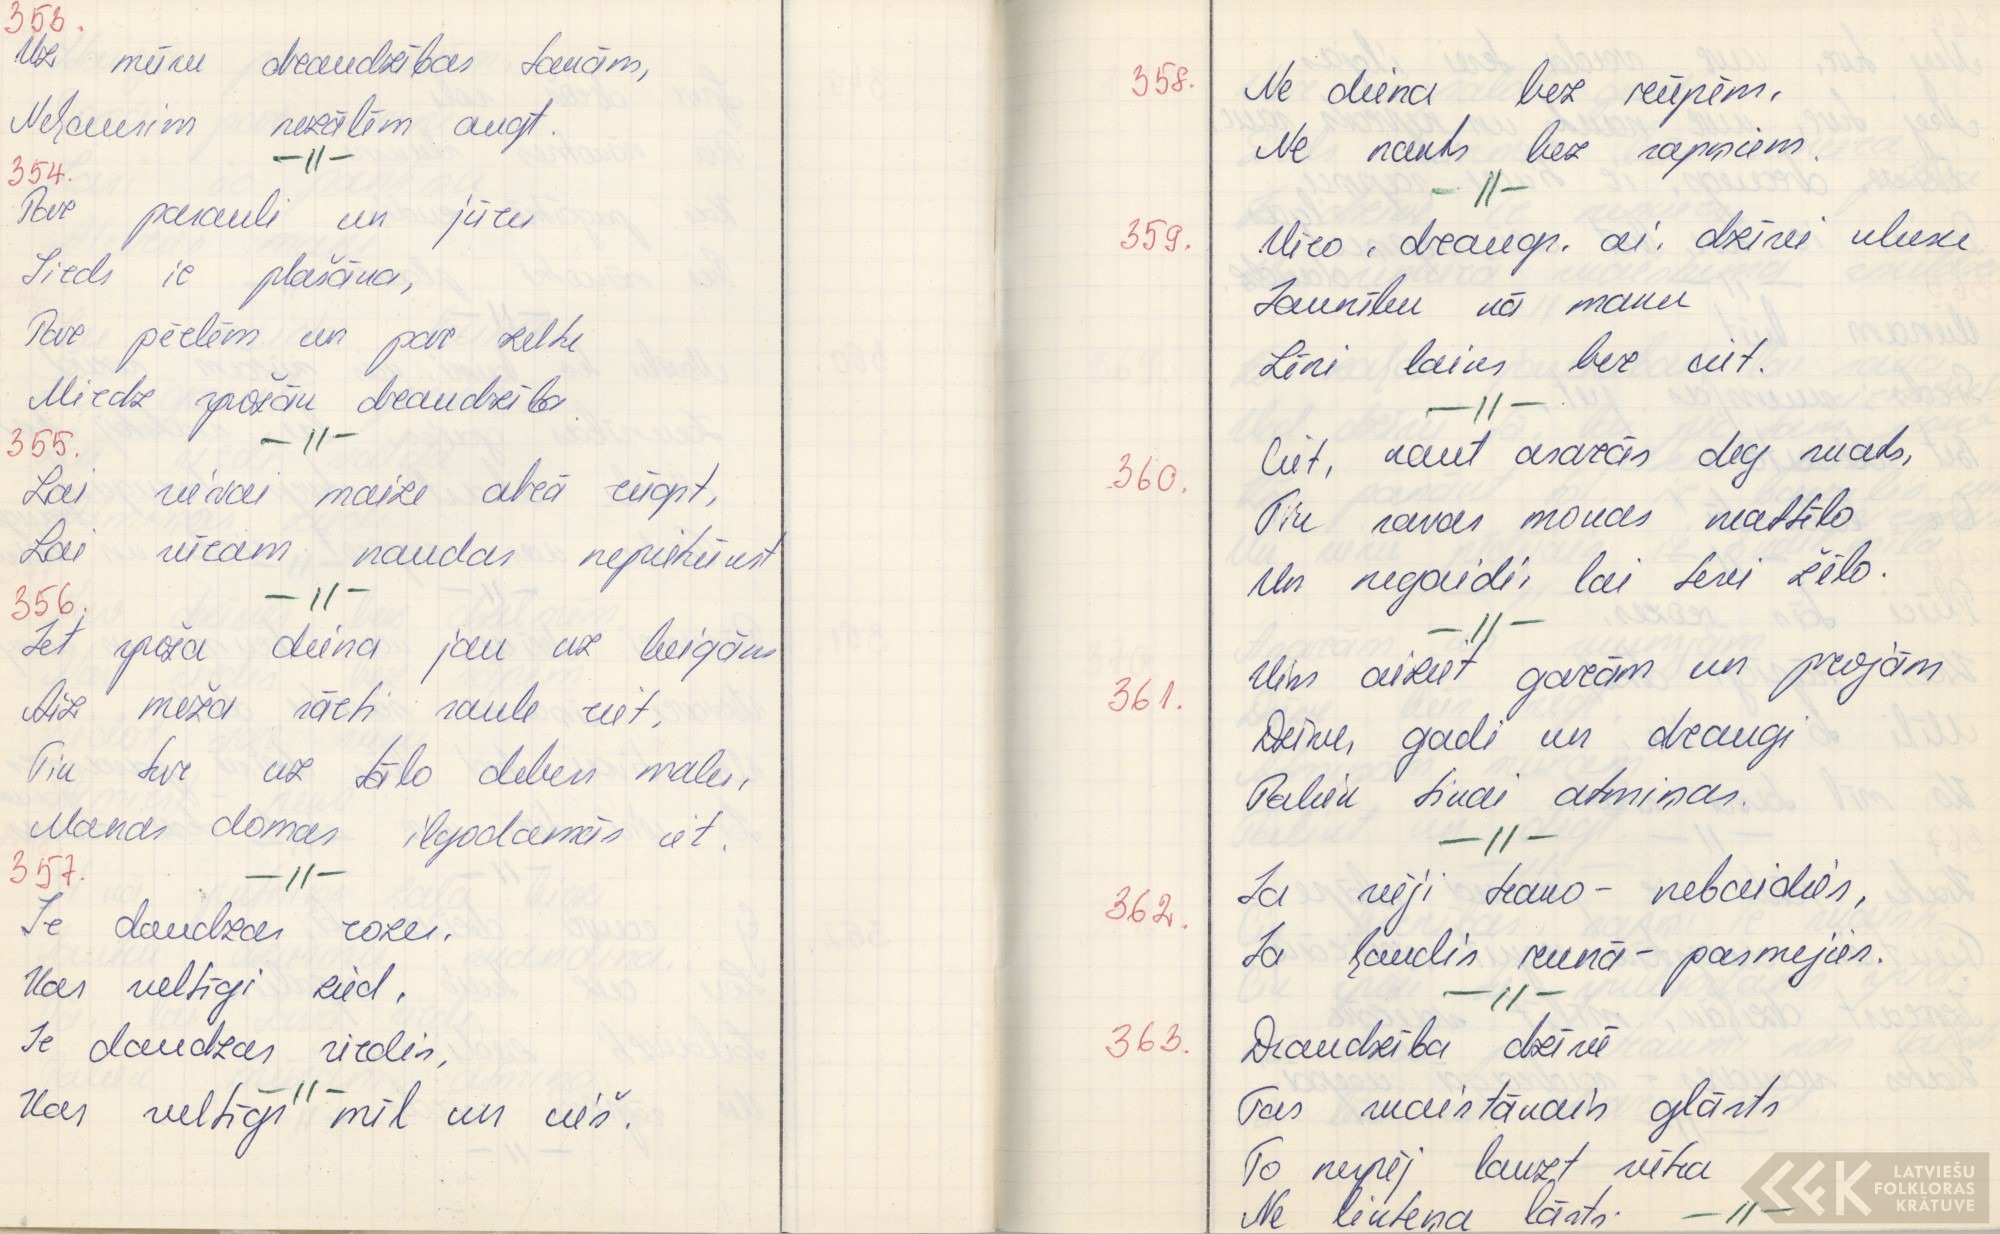 353.
Uz mūsu draudzības takām,
Neļausim nezālēm augt.
—//—
354.
Par pasauli un jūru
Sirds ir plašāka,
Par pērlēm un par zeltu
Mirdz spožāk draudzība.
—//—
355.
Lai sievai maize abrā rūgst,
Lai vīram naudas nepietrūkst
—//—
356.
Iet spoža diena jau uz beigām
Aiz meža sārti saule riet,
Tik tur uz tālo debess malu,
Manas domas ilgodamās iet.
—//—
357.
Ir daudzas rozes,
Kas veltīgi zied,
Ir daudzas sirdis,
—//—
Kas veltīgi mīl un cieš.
358.
Ne diena bez rūpēm,
Ne nakts bez sapņiem.
—//—
359.
Vico, draugs, ai, dzīvei
Jaunību kā maku
Līni laims bez
—//—
360.
Ciet, kaut asarās deg skats,
Tik savas mokas neattēlo
Un negaidi, lai tevi žēlo.
—//—
361.
Viss aiziet garām un projām
Dzīve, gadi un draugi
Paliek tikai atmiņas.
—//—
362.
Ja vēji trako - nebaidies,
Ja ļaudis runā - pasmejies.
—//—
363.
Draudzība dzīvē
Tas skaistākais glāsts
To nespēj lauzt vētra
Ne likteņa lāsts.
—//—
LATVIEŠU
FOLKLORAS
KRĀTUVE